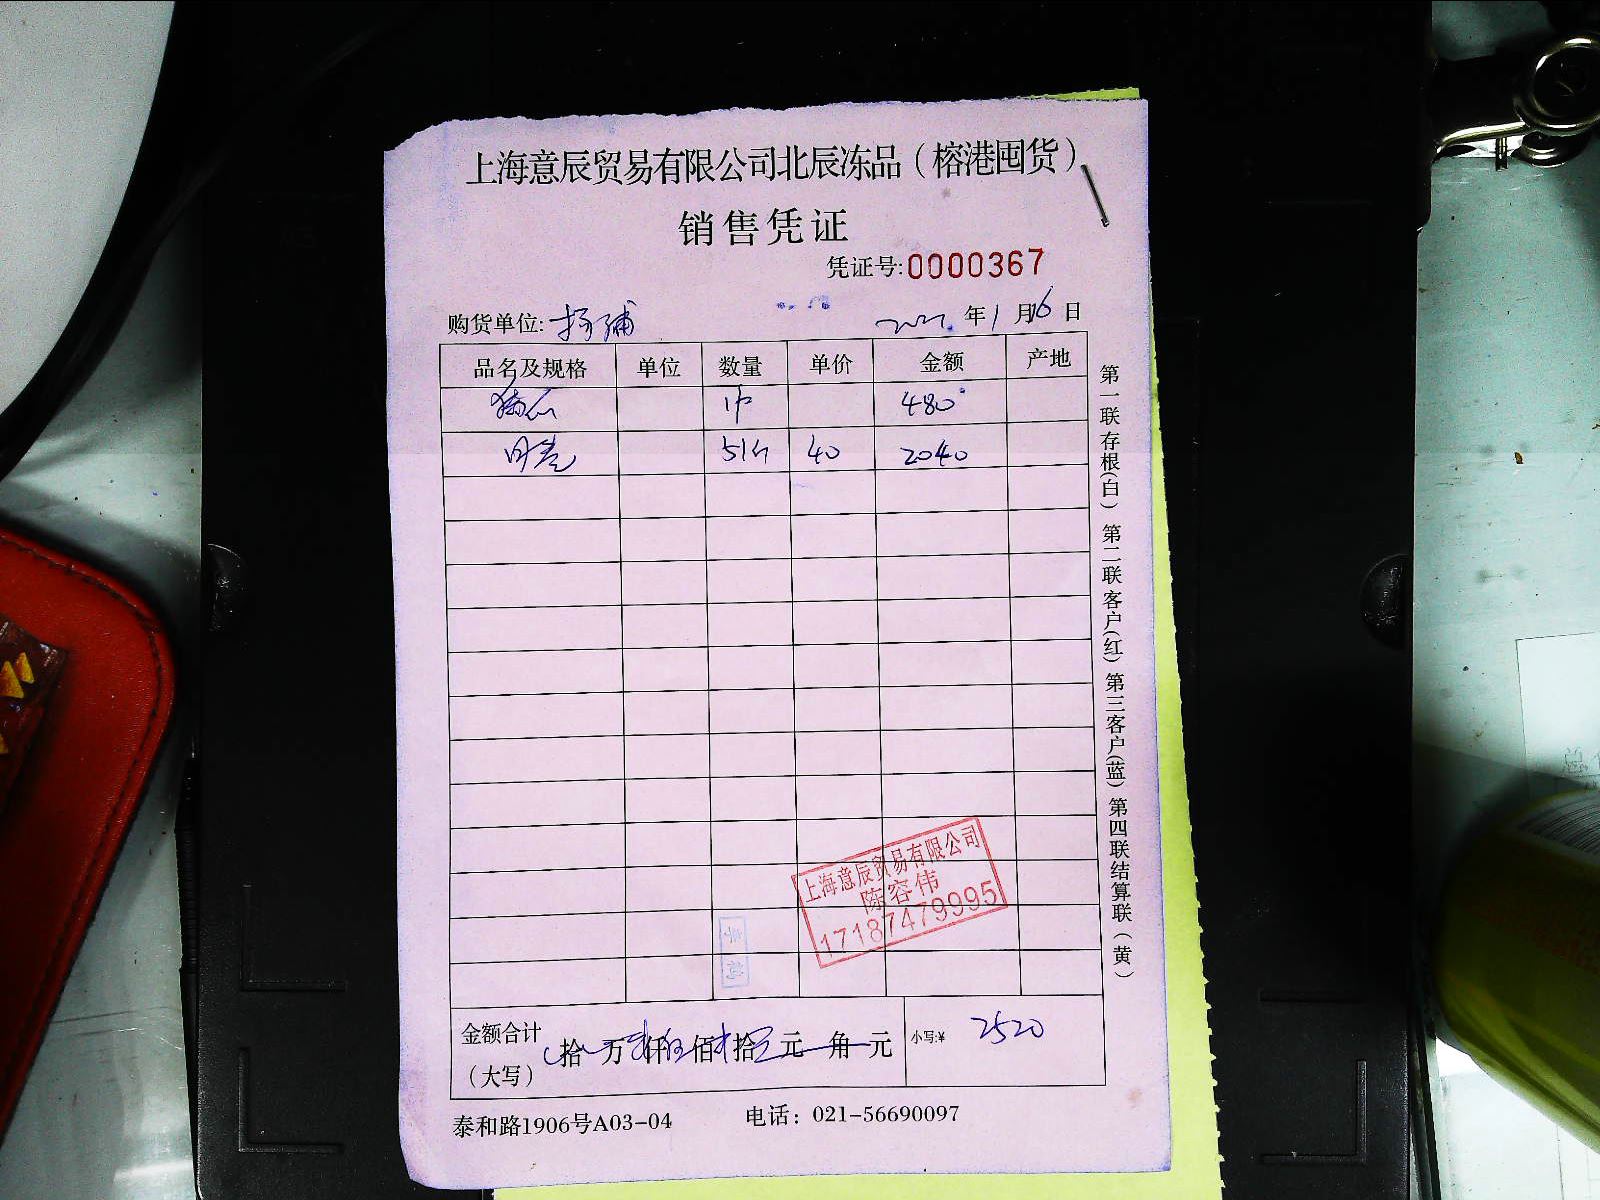 上海意辰贸易有限公司北辰冻品（榕港囤货）
销售凭证
凭证号:0000367
购货单位: 杨浦 年1月16日
品名及规格 单位 数量 单价 金额 产地
1件 480
51斤 40 2040
上海意辰贸易有限公司
陈容伟
17187479995
金额合计（大写） 拾 万贰仟伍佰贰拾 元 角 元 小写:¥ 2520
泰和路1906号A03-04 电话：021-56690097
第一联存根(白) 第二联客户(红) 第三客户(蓝) 第四联结算联（黄）